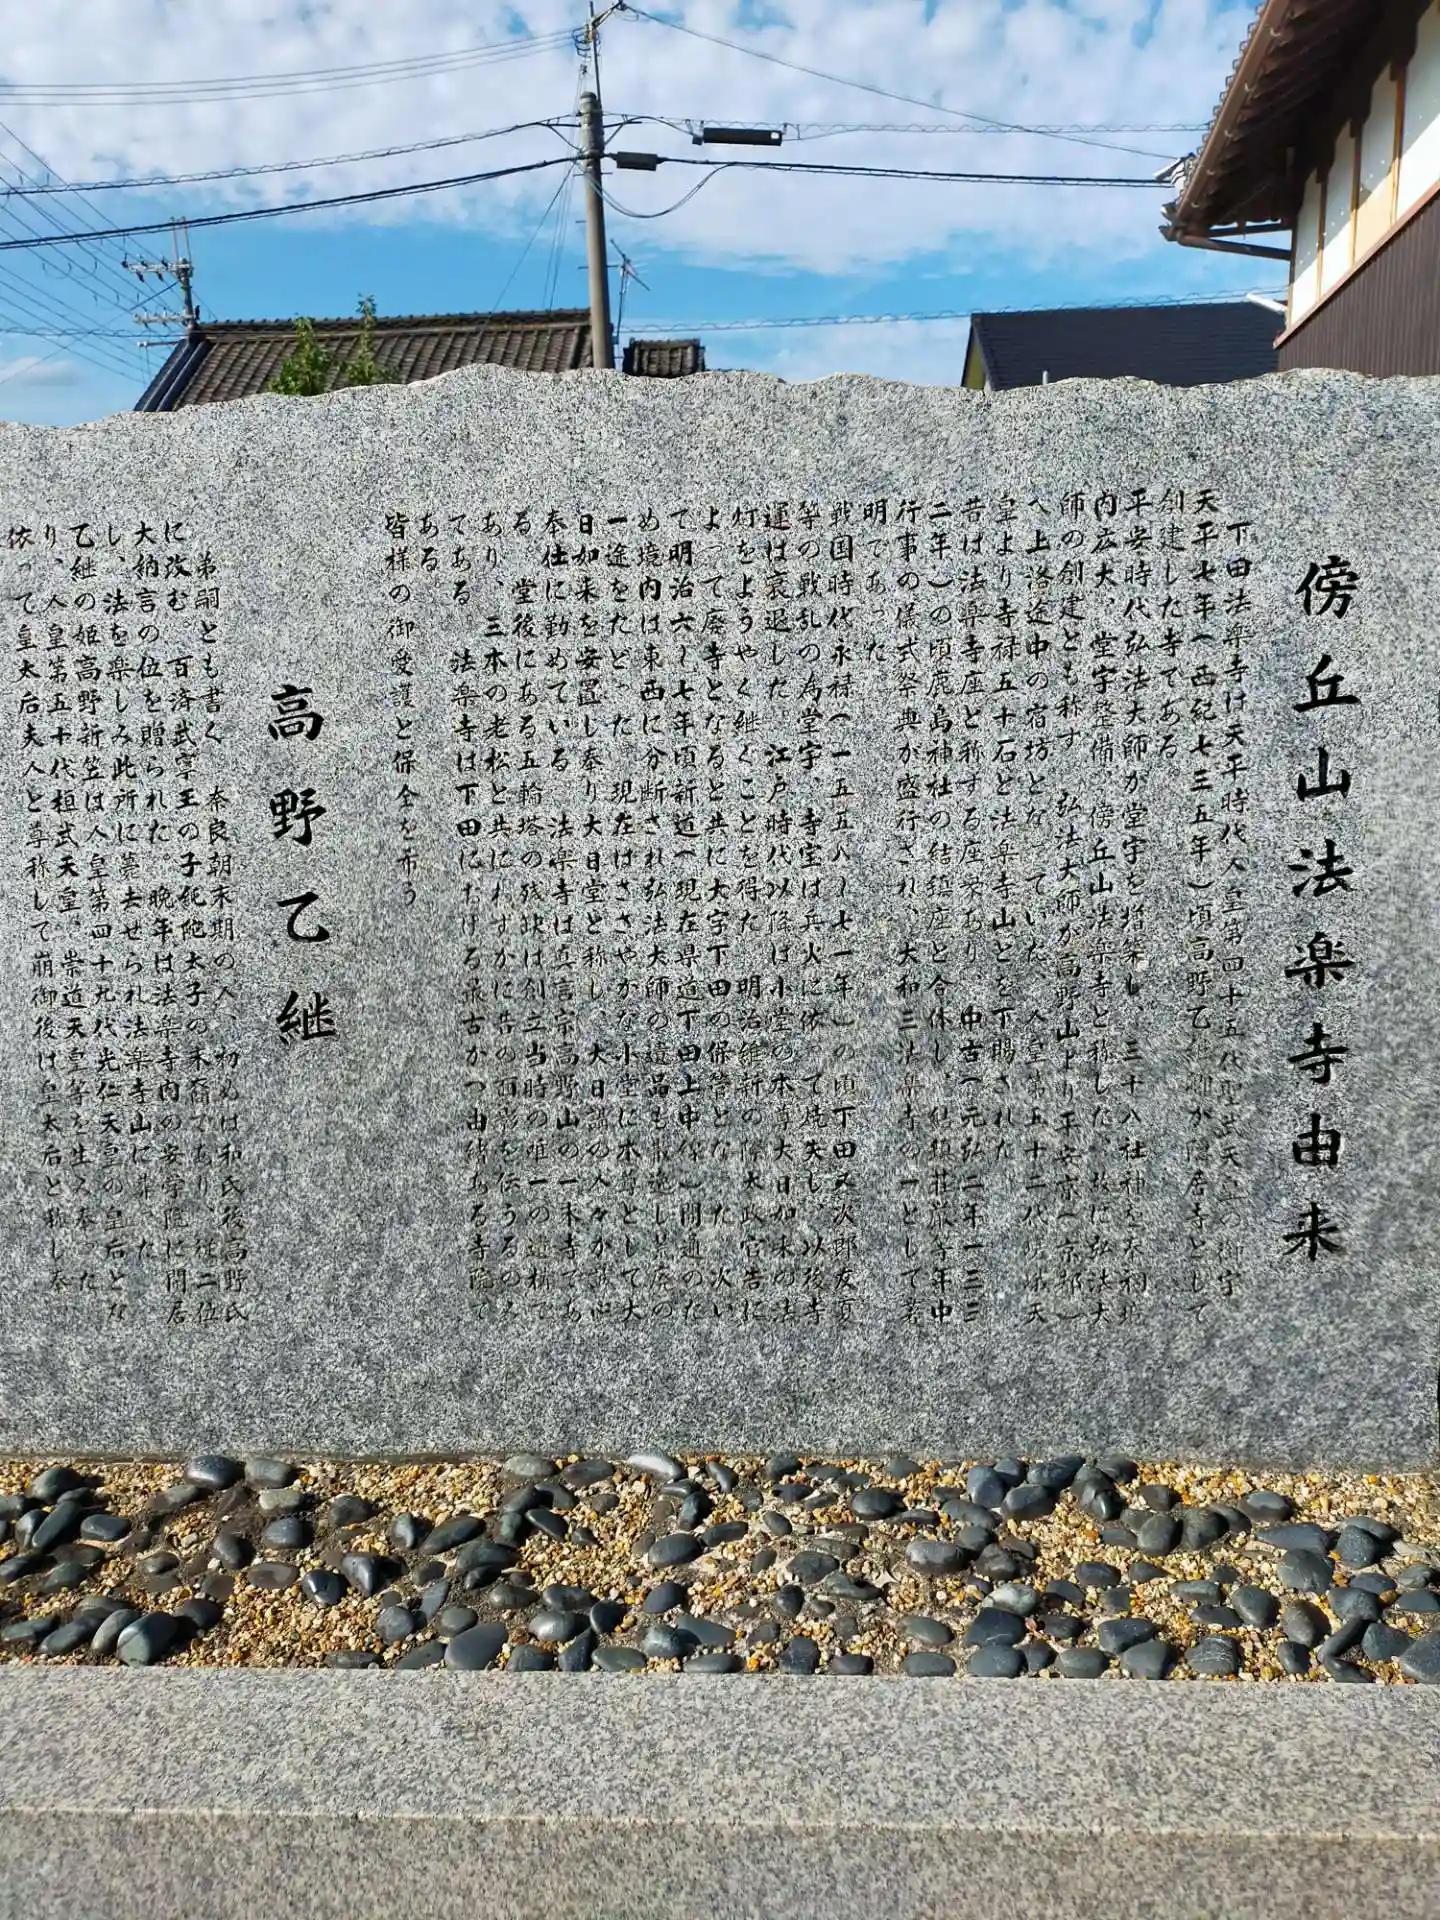 傍丘山法楽寺由来
下田法楽寺は天平時代人皇第四十五代聖武天皇の御宇
天平七年(西紀七三五年)頃高野乙継卿が隠居寺として
創建した寺である。
平安時代弘法大師が堂宇を増築し、三十八社神を奉祠境
内広大、堂宇整備、傍丘山法楽寺と称した、故に弘法大
師の創建とも称す 弘法大師が高野山より平安京(京都)
へ上洛途中の宿坊となっていた、人皇第五十二代嵯峨天
皇より寺禄五十石と法楽寺山とを下賜された
昔は法楽寺座と称する座衆あり、中古(元弘二年一三三
二年)の頃鹿島神社の結鎮座と合体し、結鎮荘厳等年中
行事の儀式祭典が盛行され、大和三法楽寺の一として著
明であった
戦国時代永禄(一五五八〜七一年)の頃下田又次郎友夏
等の戦乱の為堂宇、寺宝は兵火に依って焼失し、以後寺
運は衰退した。江戸時代以降は小堂の本尊大日如来の法
灯をようやく継ぐことを得た、明治維新の際太政官告に
よって廃寺となると共に大字下田の保管となった、次い
で明治六〜七年頃新道(現在県道下田上中線)開通のた
め境内は東西に分断され弘法大師の遺品も散逸し荒廃の
一途をたどった、現在はささやかな小堂に本尊として大
日如来を安置し奉り大日堂と称し、大日講の人々が護心
奉仕に勤めている 法楽寺は真言宗高野山の一末寺であ
る。堂後にある五輪塔の残欠は創立当時の唯一の遺構で
あり、三本の老松と共にわずかに昔の面影を伝うるのみ
である 法楽寺は下田における最古かつ由緒ある寺院で
ある。
皆様の御愛護と保全を希う
高野乙継
弟嗣とも書く 奈良朝末期の人、初めは和氏後高野氏
に改む。百済武寧王の子純陀太子の末裔であり、従二位
大納言の位を贈られた。晩年は法楽寺内の安学院に閑居
し、法を楽しみ此所に薨去せられ法楽寺山に葬った
乙継の姫高野新笠は人皇第四十九代光仁天皇の皇后とな
り、人皇第五十代桓武天皇、崇道天皇等を生み奉った
依って皇太后夫人と尊称して崩御後は皇太后と称し奉